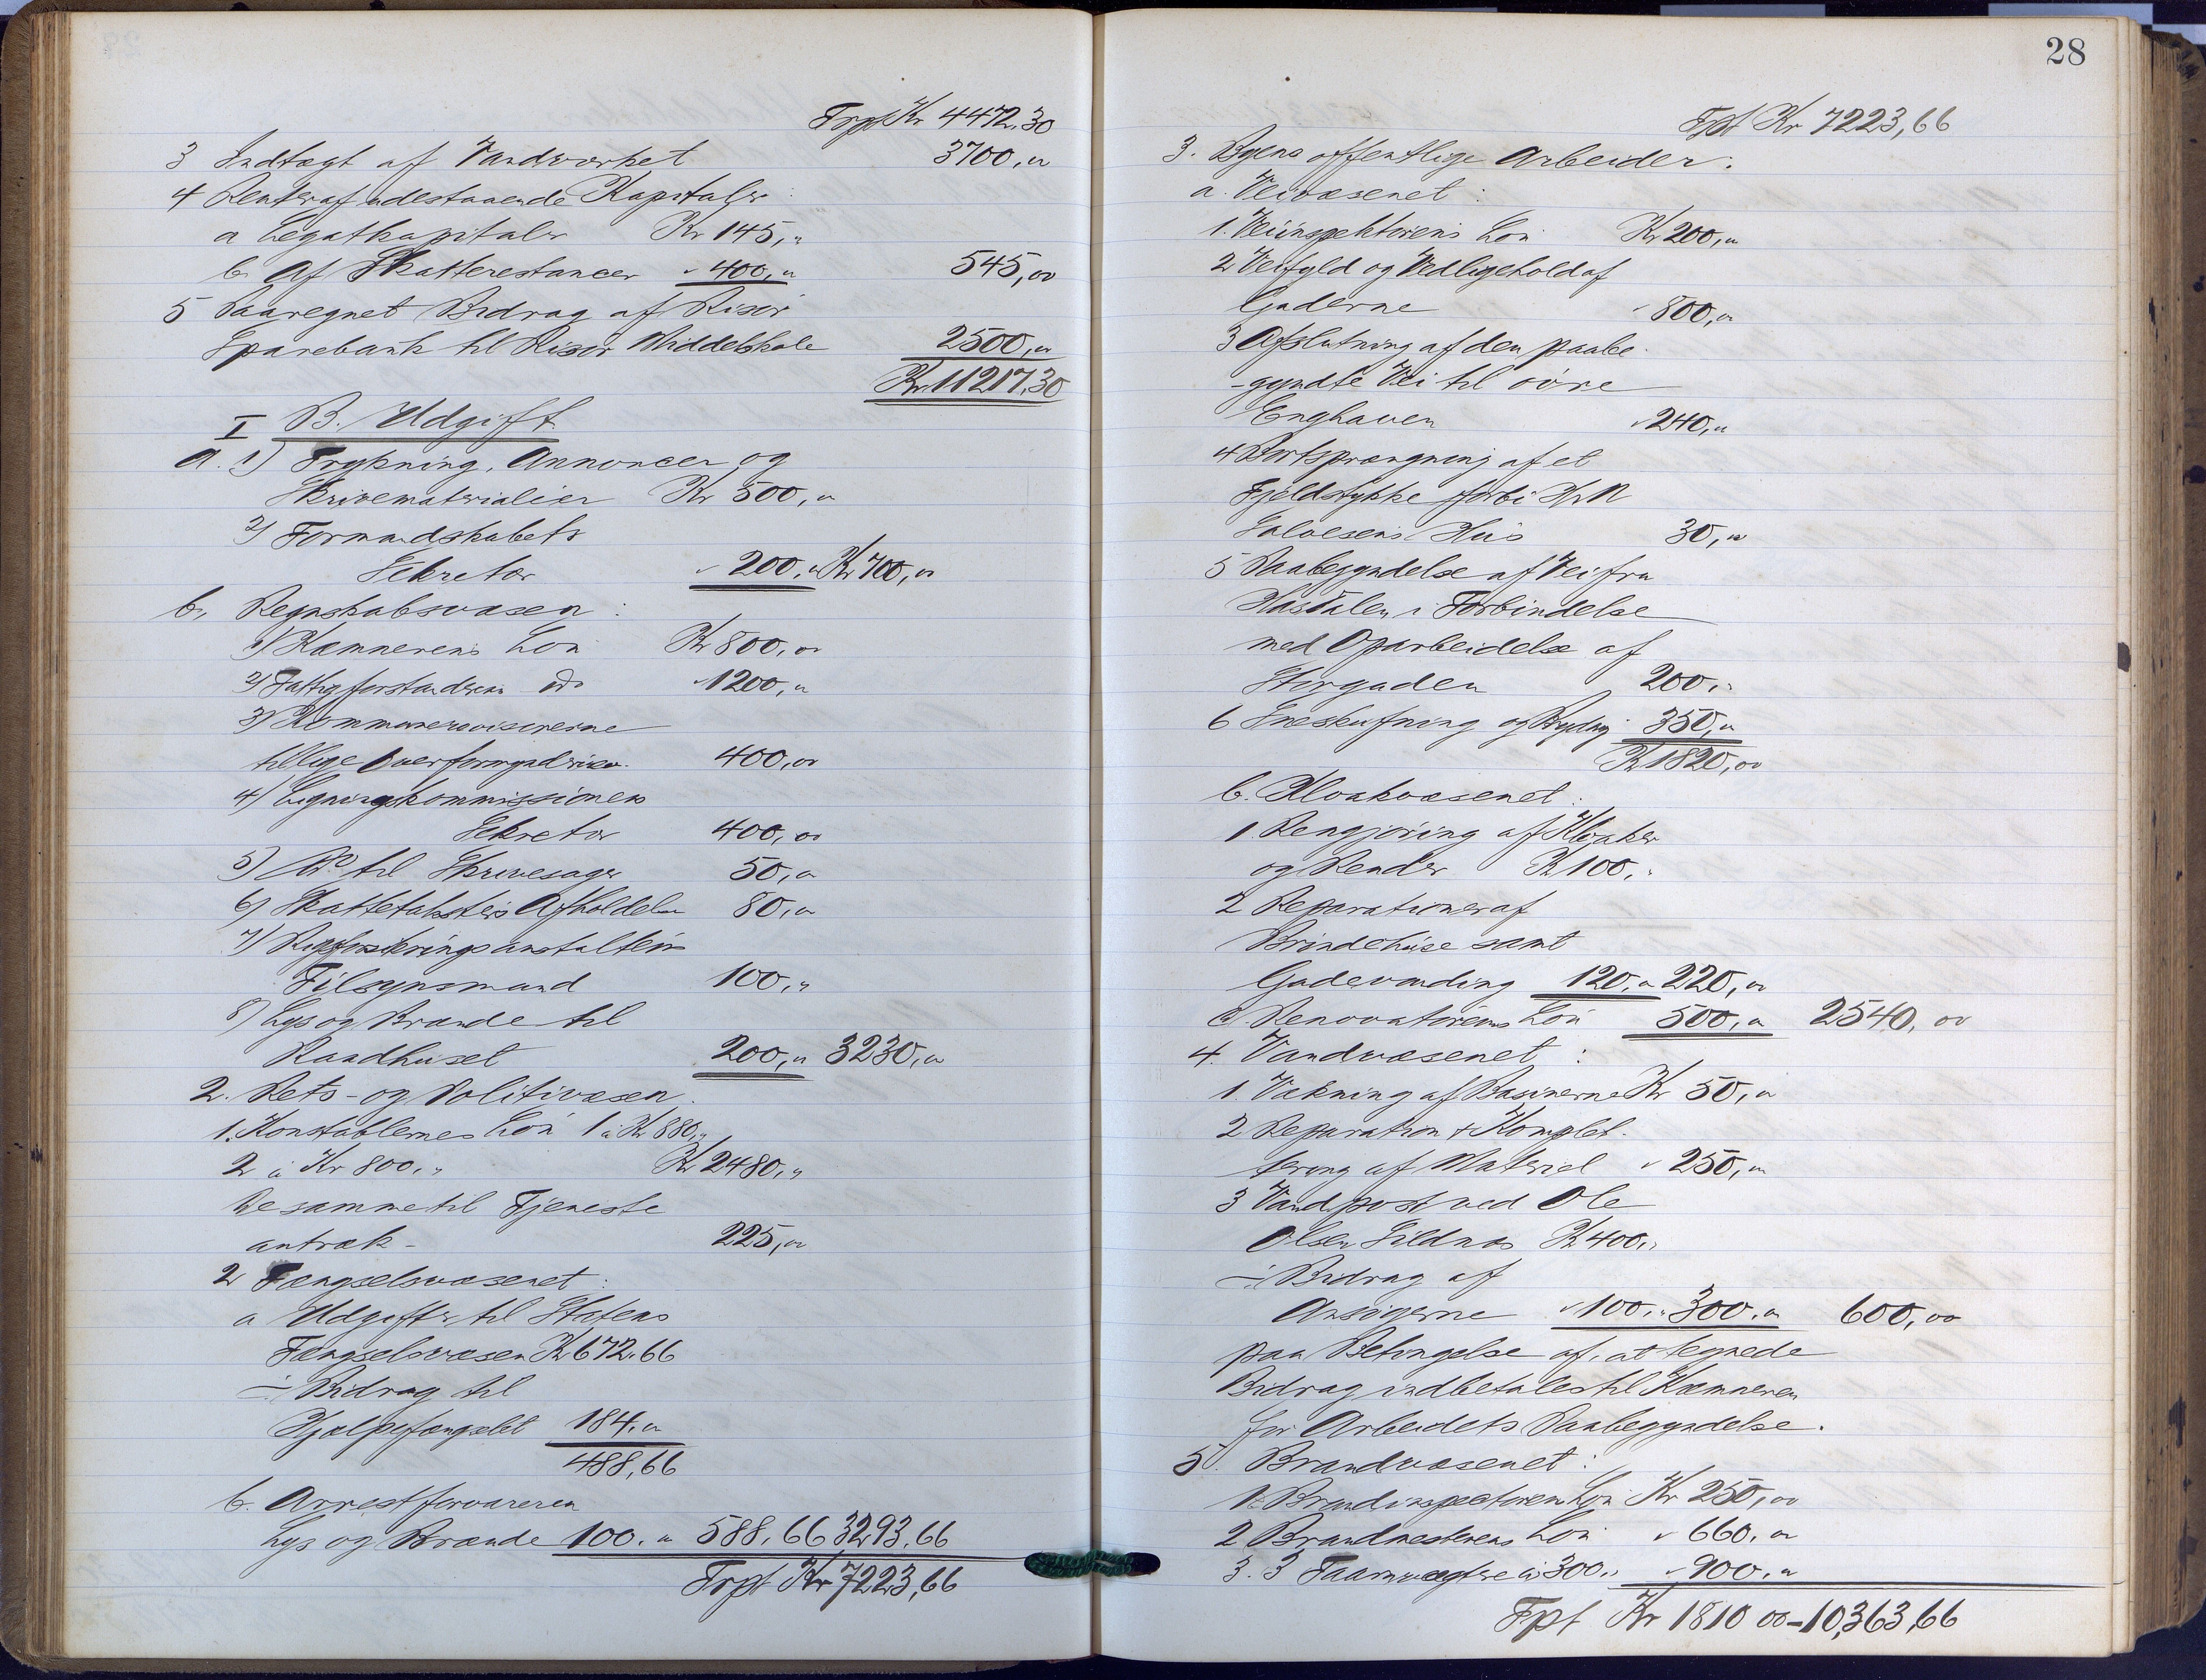 Trpt Kr 4472,30
3 Indtægt af Vandværket 3700,"
4 Renter af udestaaende Kapitaler:
a Legatkapitaler Kr 145,"
b Af Skatterestancer " 400,00 545,00
5 Paaregnet Bidrag af Risør
Sparebank til Risør Middelskole 2500,00
Kr 11217,30
I B. Udgift.
a. 1) Trykning, Annoncer og
Skrivematerialier Kr 500,"
2) Formandskabets
Sekretær " 200," Kr 700,00
b, Regnskabsvæsen:
1) Kæmnerens Løn Kr 800,00
2) Fattigforstanderens do " 1200,"
3) Kommunerevisorerne
tillige Overformynderiev. 400,00
4) Ligningskommissionens
Sekretær 400,00
5) Do til Skrivesager 50,00
6) Skattetaksters Afholdelse 80,00
7)
Tilsynsmand 100,"
8) Lys og Brænde til
Raadhuset 200,00 3230,00
2. Rets- og Politivæsen.
1. Konstablernes Løn 1 à Kr 880,"
2 à Kr 800," Kr 2480,"
De samme til Tjeneste
antræk - 225,00
2 Fængselsvæsenet:
a Udgifter til Statens
Fængselsvæsen Kr 672,66
÷ Bidrag til
Hjælpefængslet 184,00
488,66
b. Arrestforvareren
Lys og Brænde 100. " 588,66 3293,66
Trpt Kr 7223,66
28
Tpt Kr 7223,66
3. Byens offentlige Arbeider:
a. Veivæsenet:
1. Veiinspektørens Løn Kr 200,00
2 Veifyld og Vedligehold af
Gaderne " 800,00
3 Afslutning af den paabe-
-gyndte Vei til øvre
Enghaven " 240,"
4 Bortsprængning af et
Fjeldstykke forbi Hr N
Salvesens Hus 30,00
5 Paabegyndelse af Vei fra
Hasdalen i Forbindelse
med Oparbeidelse af
Storgaden 200,"
6 Sneskufning og Brydng 350,00
Kr 1820,00
b. Kloakvæsenet:
1. Rengjøring af Kloaker
og Render Kr 100,"
2 Reparationer af
Brøndehuse samt
Gadevanding 120," 220,00
c. Renovatørens Løn 500,00 2540,00
4. Vandvæsenet:
1. Vakning af Basinerne Kr 50,00
2 Reparation & Komplet-
tering af Materiel " 250,00
3 Vandpost ved Ole
Olsen Sildnæs Kr 400,"
÷ Bidrag af
Ansøgerne " 100," 300,00 600,00
paa Betingelse af, at tegnede
Bidrag indbetales til Kæmneren
før Arbeidets Paabegyndelse.
5. Brandvæsenet:
1. Brandinspectørens Løn Kr 250,00
2 Brandmesterens Løn " 660,00
3. 3 Taarnvægtere à 300," " 900,"
Tpt Kr 1810 00 - 10,363,66